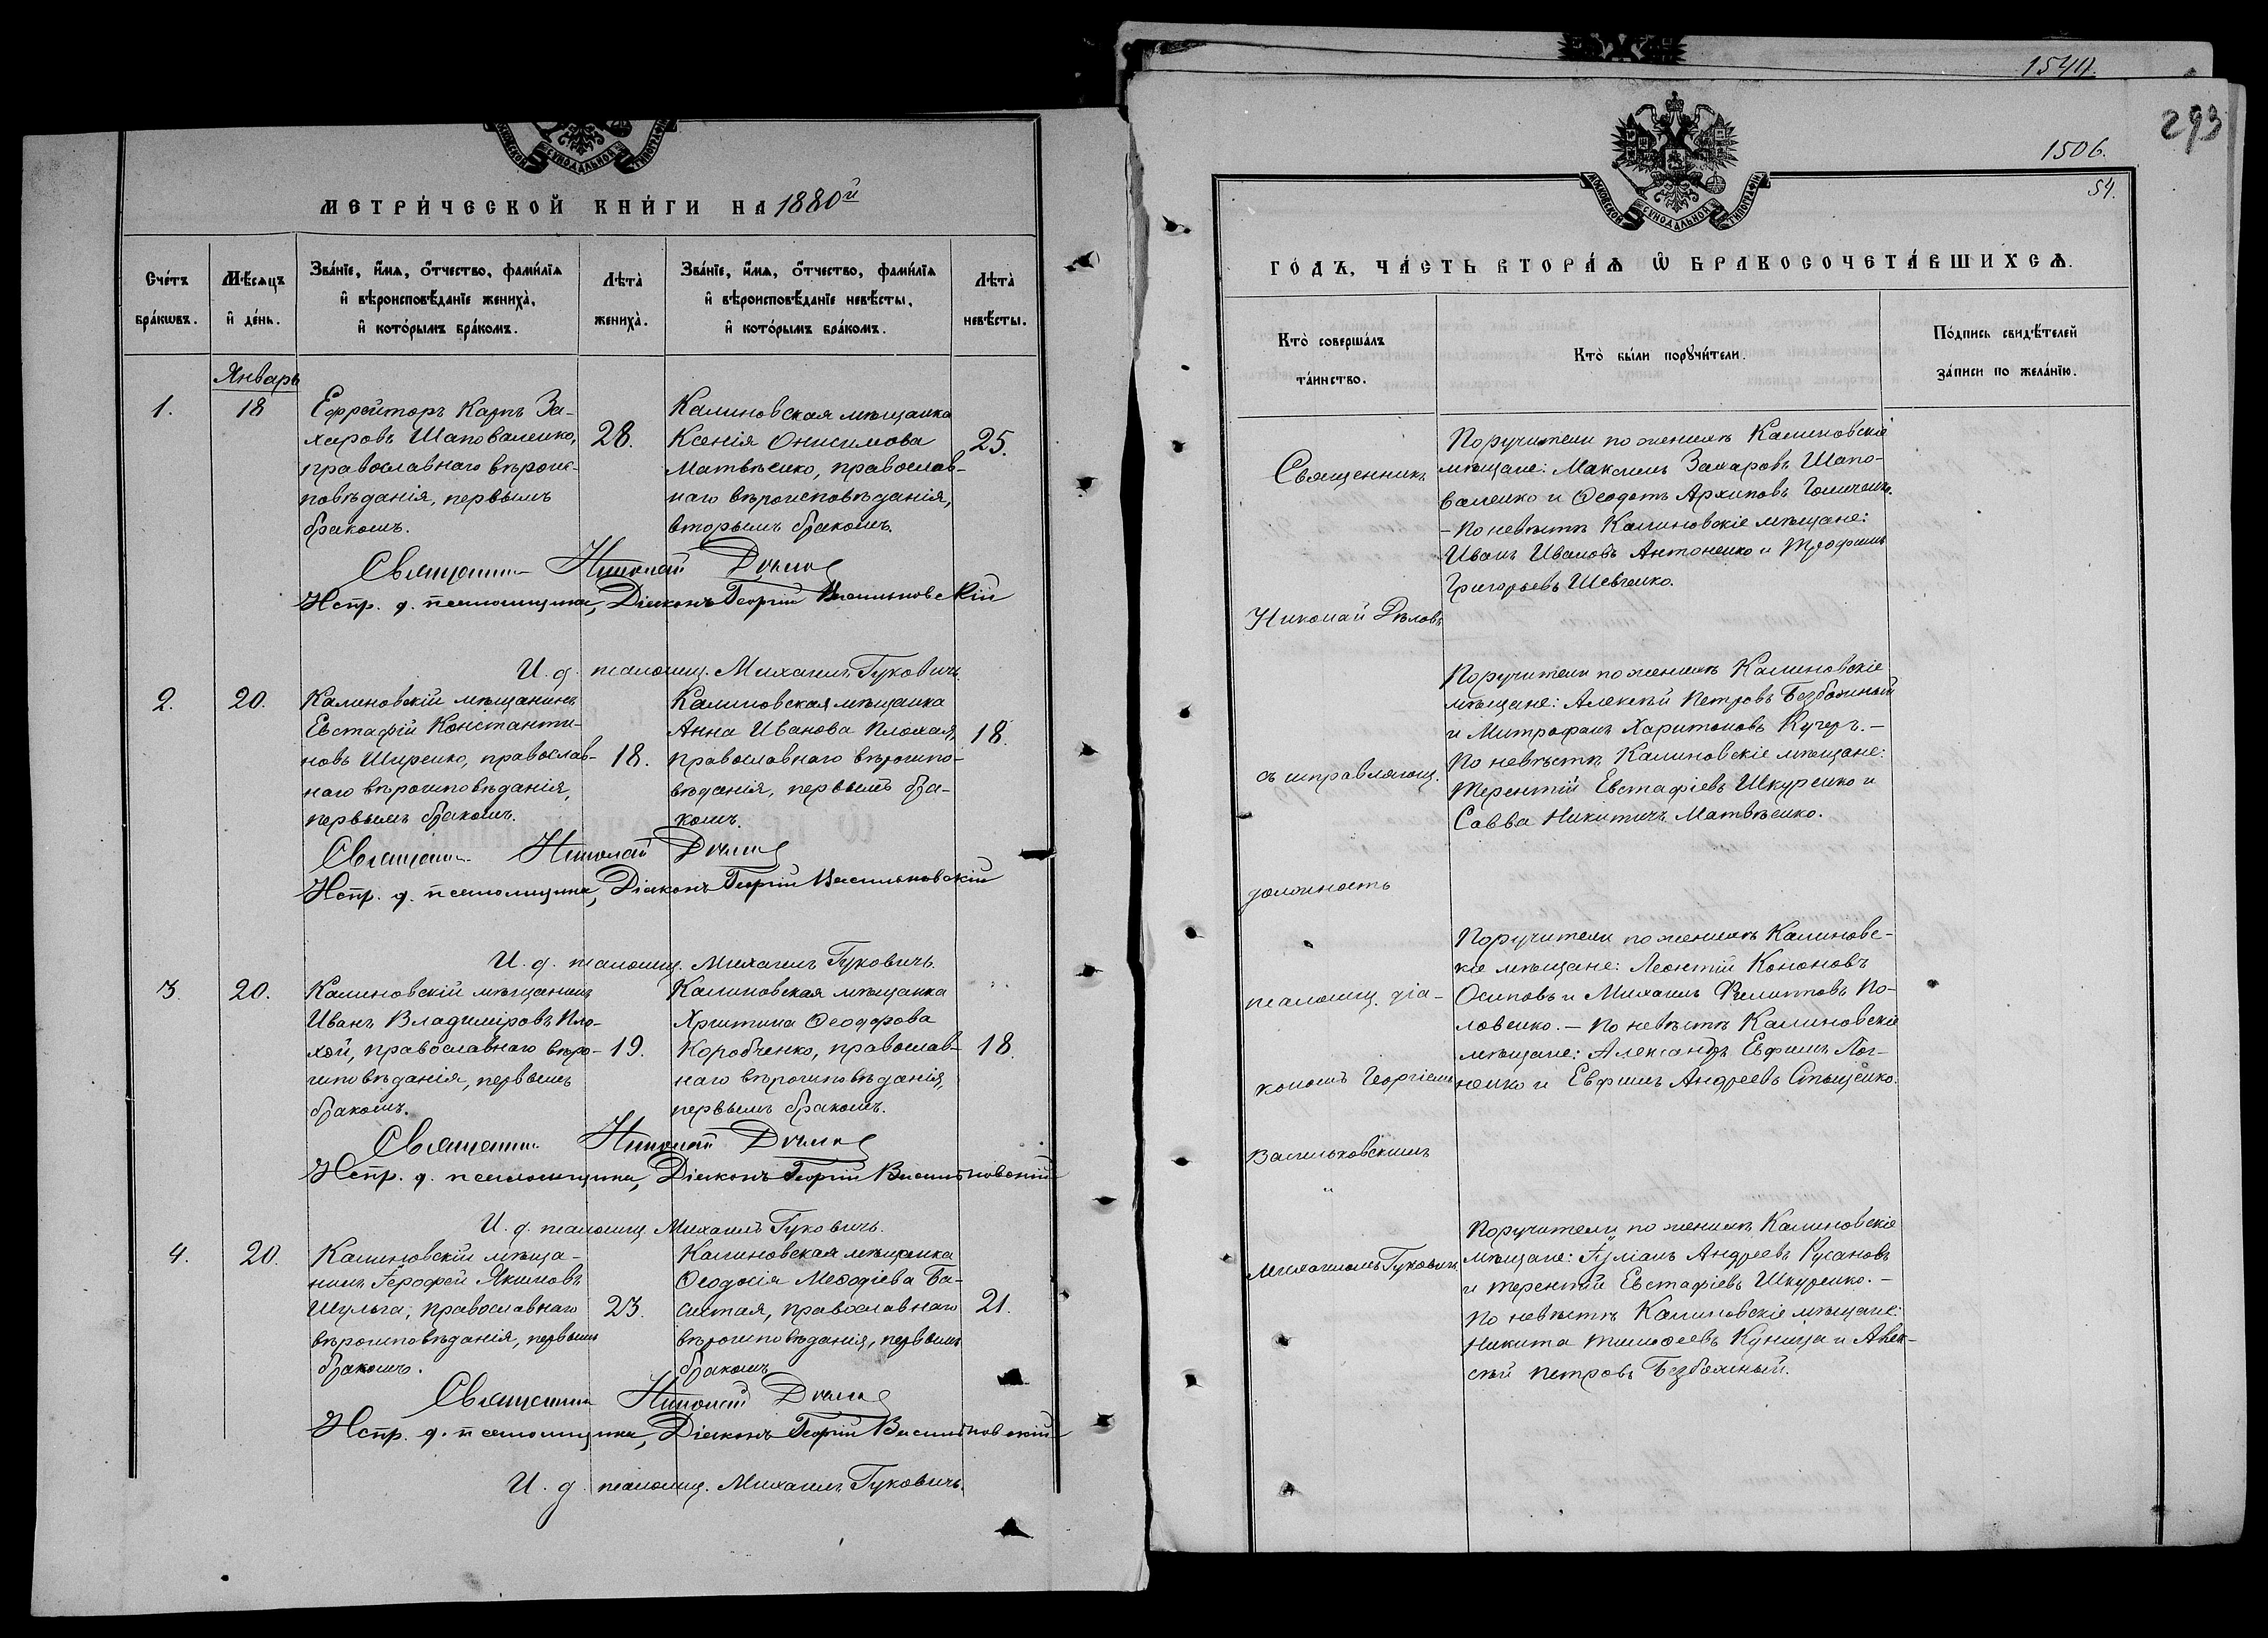 МОСКОВСКОЙ СѴНОДАЛЬНОЙ ТИПОГРАФІИ
МЕТРИ́ЧЕСКОЙ КНИ́ГИ НА 1880й
Сче́тъ бра́кωвъ.
Мѣ́сяцъ и҆ де́нь.
Зва́нїе, и҆́мѧ, ѻ҆́тчество, фами́лїѧ и҆ вѣроисповѣ́данїе жениха̀, и҆ кото́рымъ бра́комъ.
Лѣта̀ жениха̀.
Зва́нїе, и҆́мѧ, ѻ҆́тчество, фами́лїѧ и҆ вѣроисповѣ́данїе невѣ́сты, и҆ кото́рымъ бра́комъ.
Лѣта̀ невѣ́сты.
Январь
1.
18
Ефрейторъ Карпъ За-
харовъ Шаповаленко,
православнаго вѣроис-
повѣданія, первымъ
бракомъ.
28.
Калиновская мѣщанка
Ксенія Онисимова
Матвѣенко, православ-
наго вѣроисповѣданія,
вторымъ бракомъ.
25.
Священник Николай
Испр. д. псаломщика, Діаконъ Георгій Васильковскій
И. д. псаломщ. Михаилъ Гуковичъ.
2.
20.
Калиновскій мѣщанинъ
Евстафій Константи-
новъ Ширенко, православ-
наго вѣроисповѣданія,
первымъ бракомъ.
18.
Калиновская мѣщанка
Анна Иванова Плохая,
православнаго вѣроиспо-
вѣданія, первымъ бра-
комъ.
18.
Священник Николай
Испр. д. псаломщика, Діаконъ Георгій Васильковскій
И. д. псаломщ. Михаилъ Гуковичъ.
3.
20.
Калиновскій мѣщанинъ
Иванъ Владиміровъ Пло-
хой, православнаго вѣро-
исповѣданія, первымъ
бракомъ.
19.
Калиновская мѣщанка
Христина Ѳеодорова
Коробченко, православ-
наго вѣроисповѣданія,
первымъ бракомъ.
18.
Священник Николай
Испр. д. псаломщика, Діаконъ Георгій Васильковскій
И. д. псаломщ Михаилъ Гуковичъ.
4.
20.
Калиновскій мѣща-
нинъ Іерофей Якимовъ
Шульга, православнаго
вѣроисповѣданія, первымъ
бракомъ.
23.
Калиновская мѣщанка
Ѳеодосія Меѳодіева Ба-
православнаго
вѣроисповѣданія, первымъ
бракомъ
21.
Священник Николай
Испр. д. псаломщика, Діаконъ Георгій Васильковскій
И. д. псаломщ. Михаилъ Гуковичъ.
293
1506.
54.
МОСКОВСКОЙ СѴНОДАЛЬНОЙ ТИПОГРАФІИ
ГО́ДЪ, ЧА́СТЬ ВТОРА́Ѧ Ѽ БРАКОСОЧЕТА́ВШИХСѦ.
Кто̀ соверша́лъ та́инство.
Кто̀ бы́ли порꙋчи́тели.
По́дпись свидѣ́телей за́писи по жела́нїю.
Священникъ
Николай Дѣловъ
съ исправляющ.
должность
псаломщ. діа-
кономъ Георгіемъ
Васильковскимъ
и
Михаиломъ Гуковичъ
Поручители по женихѣ Калиновскіе
мѣщане: Максимъ Захаровъ Шапо-
валенко и Ѳеодотъ Архиповъ
- По невѣстѣ Калиновскіе мѣщане:
Иванъ Ивановъ Антоненко и Трофимъ
Григорьевъ Шевченко.
Поручители по женихѣ Калиновскіе
мѣщане: Алексѣй Петровъ Безбожный
и Митрофанъ Харитоновъ Кучеръ. -
По невѣстѣ Калиновскіе мѣщане:
Терентій Евстафіевъ Шкуренко и
Савва Никитичъ Матвѣенко.
Поручители по женихѣ Калиновс-
кіе мѣщане: Леонтій Кононовъ
Осиповъ и Михаилъ Филипповъ По-
ловенко. - По невѣстѣ Калиновскіе
мѣщане: Александръ Ефимъ Лог-
ненко и Евфимъ Андреевъ
Поручители по женихѣ Калиновскіе
мѣщане: Іуліанъ Андреевъ Русановъ
и Терентій Евстафіевъ Шкуренко. -
По невѣстѣ Калиновскіе мѣщане:
Никита Тимоѳеевъ Куница и Алек-
сѣй Петровъ Безбожный.